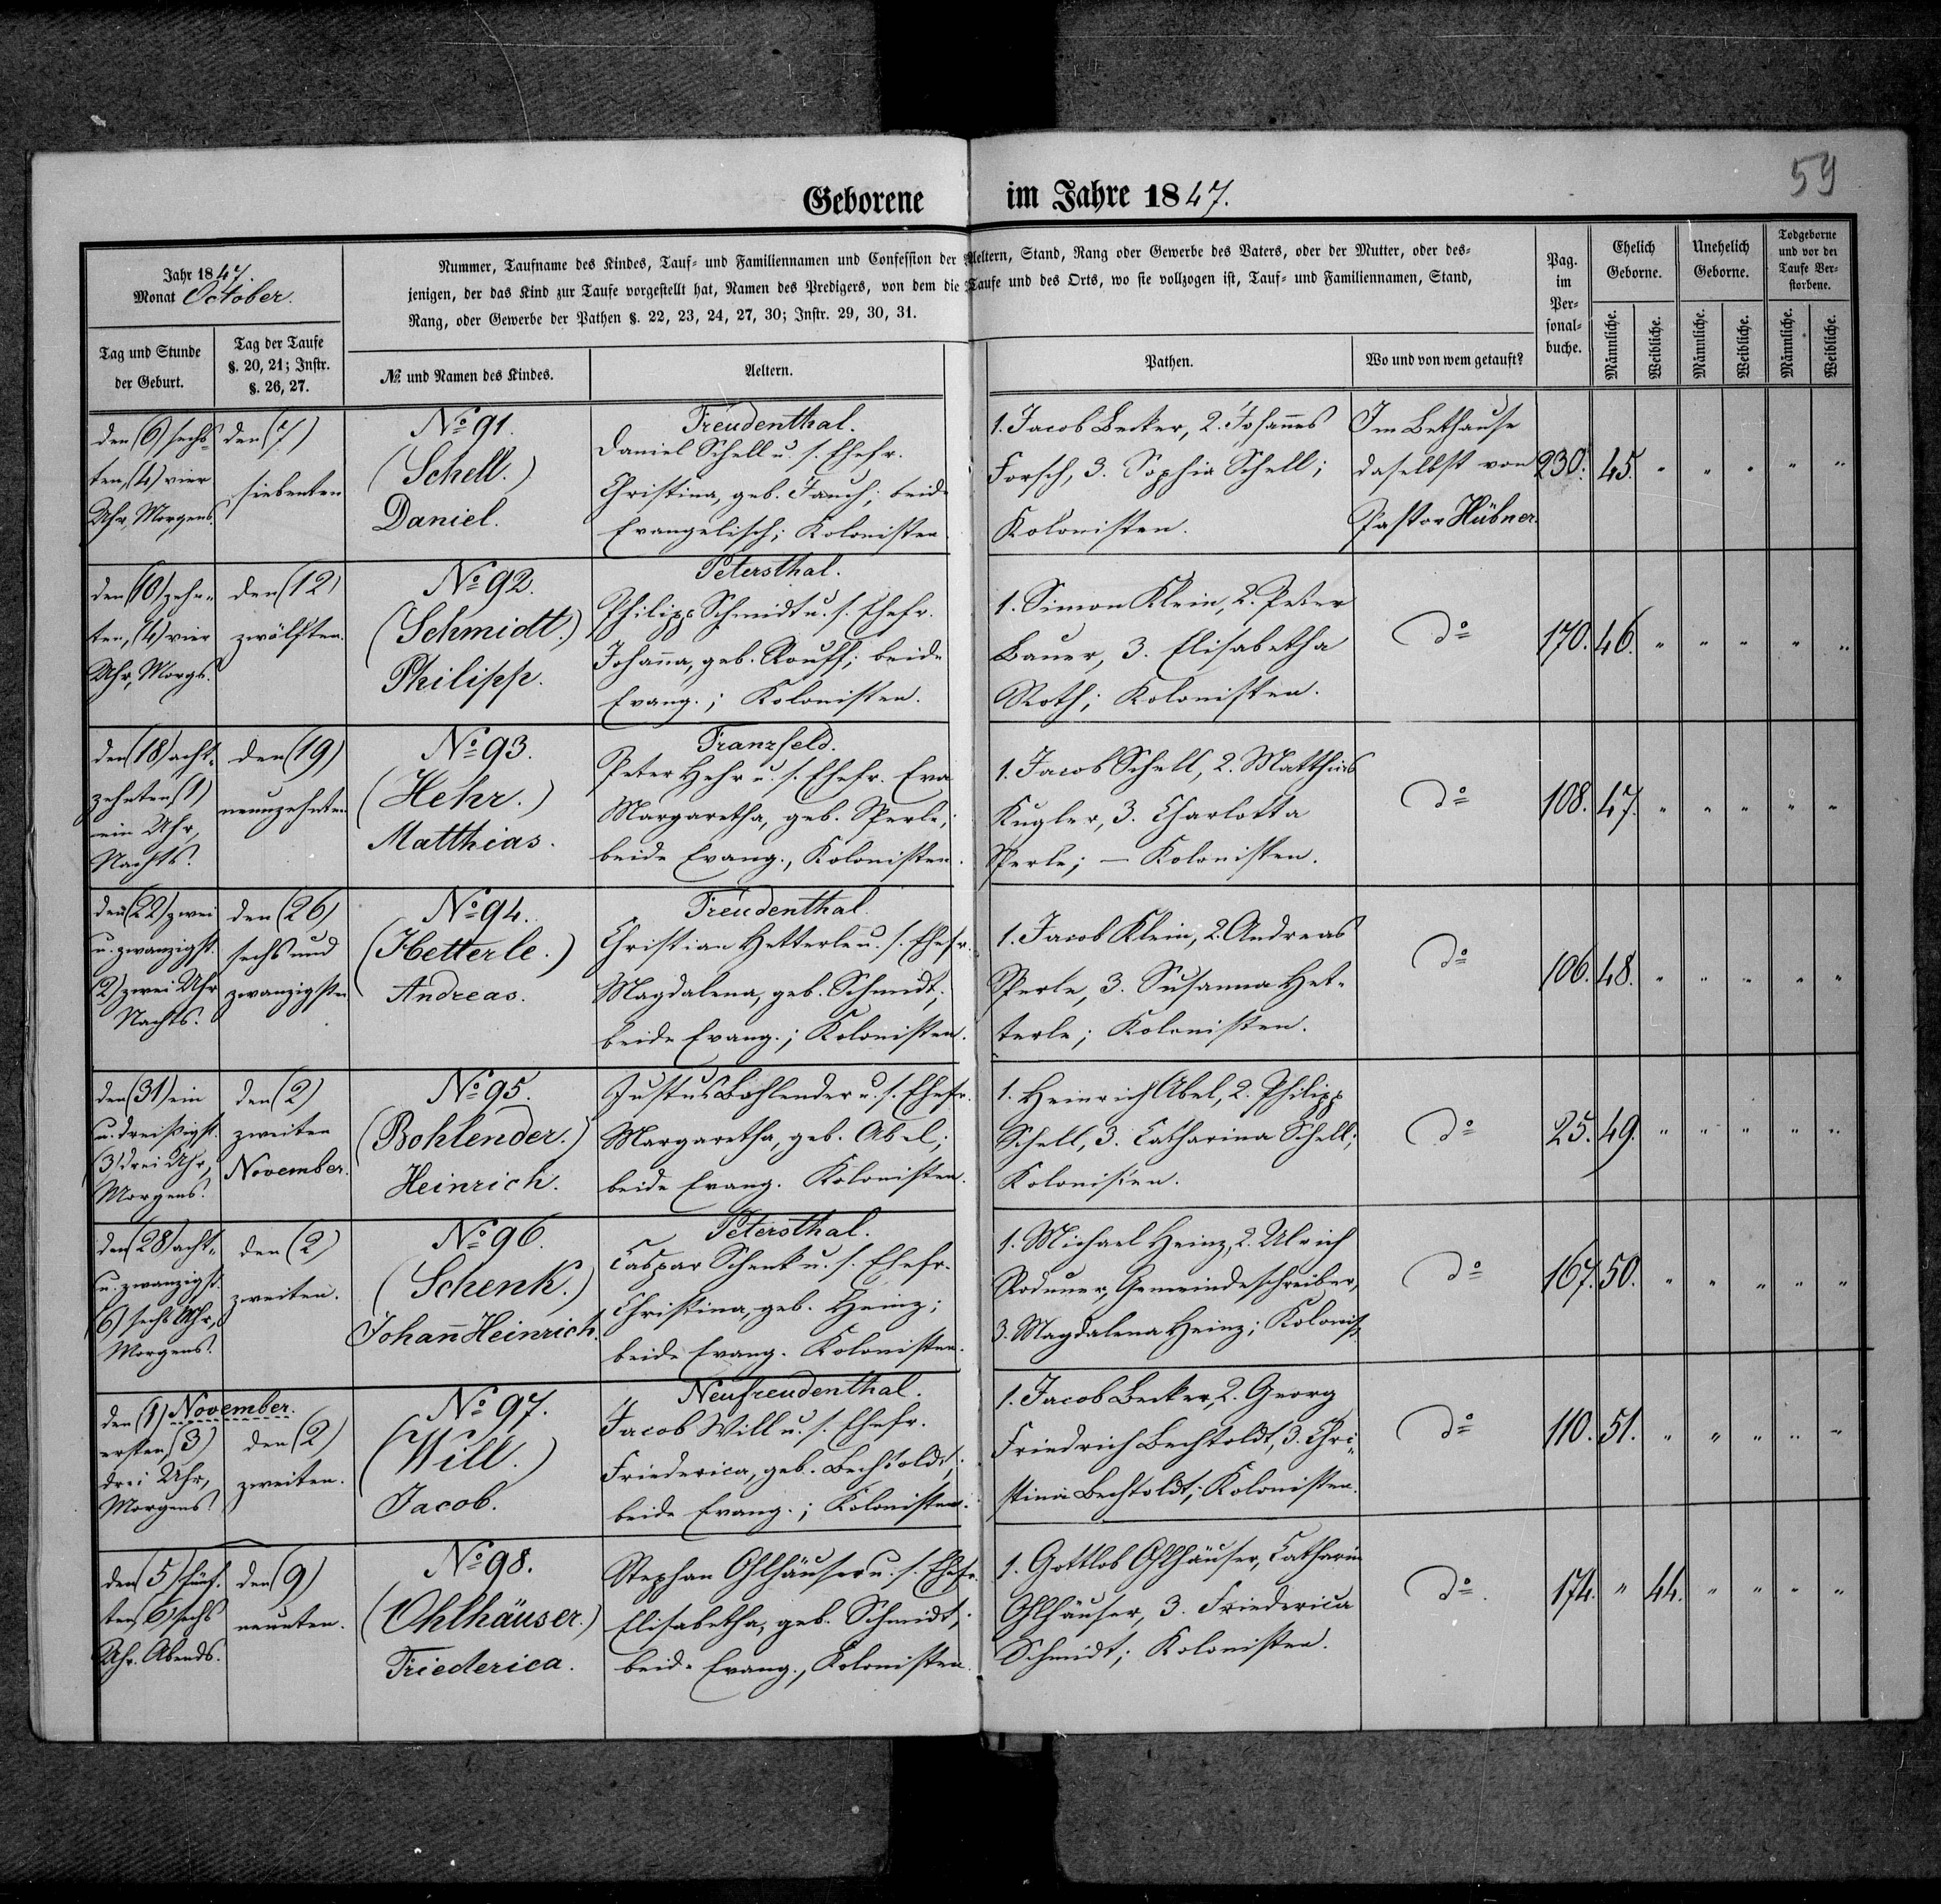 59
Geborene im Jahre 1847.
Jahr 1847.
Monat October.
Nummer, Taufname des Kindes, Tauf- und Familiennamen und Confession der Aeltern, Stand, Rang oder Gewerbe des Vaters, oder der Mutter, oder des-
jenigen, der das Kind zur Taufe vorgestellt hat, Namen des Predigers, von dem die Taufe und des Orts, wo sie vollzogen ist, Tauf- und Familiennamen, Stand,
Rang, oder Gewerbe der Pathen §. 22, 23, 24, 27, 30; Instr. 29, 30, 31.
Tag und Stunde
der Geburt.
Tag der Taufe
§. 20, 21; Instr.
§. 26, 27.
№ und Namen des Kindes.
Aeltern.
Pathen.
Wo und von wem getauft?
Pag.
im
Per-
sonal-
buche.
Ehelich
Geborne.
Unehelich
Geborne.
Todgeborne
und vor der
Taufe Ver-
storbene.
Männliche.
Weibliche.
Männliche.
Weibliche.
Männliche.
Weibliche.
den (6) sechs-
ten, (4) vier
Uhr, Morgens.
den (7)
siebenten
No 91.
(Schell.)
Daniel.
Freudenthal.
Daniel Schell u. s. Ehefr.
Christina, geb. Jauch; beide
Evangelisch; Kolonisten
1. Jacob Becker, 2. Johannes
Forsch, 3. Sophia Schell;
Kolonisten.
Im Bethause
daselbst von
Pastor Hübner.
230. 45. " " " " "
den (10) zehn-
ten, (4) vier
Uhr, Morgs.
den (12)
zwölften.
No 92.
(Schmidt.)
Philipp.
Petersthal.
Philipp Schmidt u. s. Ehefr.
Johanna, geb. Rouff; beide
Evang.; Kolonisten.
1. Simon Klein, 2. Peter
Bauer, 3. Elisabetha
Roth; Kolonisten.
do
170. 46. " " " " "
den (18) acht-
zehnten (1)
ein Uhr,
Nachts.
den (19)
neunzehnten
No 93.
(Hehr.)
Matthias.
Franzfeld.
Peter Hehr u. s. Ehefr. Eva
Margaretha, geb. Sperle;
beide Evang., Kolonisten.
1. Jacob Schell, 2. Matthias
Kugler, 3. Charlotta
Sperle; — Kolonisten.
do
108. 47. " " " " "
den (22) zwei
u. zwanzigst.
(2) zwei Uhr
Nachts.
den (26)
sechs und
zwanzigsten
No 94.
(Hetterle.)
Andreas.
Freudenthal.
Christian Hetterle u. s. Ehefr.
Magdalena, geb. Schmidt;
beide Evang.; Kolonisten.
1. Jacob Klein, 2. Andreas
Sperle, 3. Susanna Het-
terle; Kolonisten.
do
106. 48. " " " " "
den (31) ein
u. dreißigst.
(3) drei Uhr,
Morgens.
den (2)
zweiten
November.
No 95.
(Bohlender.)
Heinrich.
Justus Bohlender u. s. Ehefr.
Margaretha, geb. Abel;
beide Evang. Kolonisten.
1. Heinrich Abel, 2. Philipp
Schell, 3. Catharina Schell;
Kolonisten.
do
25. 49. " " " " "
den (28) acht-
u. zwanzigst.
(6) sechs Uhr,
Morgens.
den (2)
zweiten.
No 96.
(Schenk.)
Johann Heinrich.
Petersthal.
Caspar Schenk u. s. Ehefr.
Christina, geb. Heinz;
beide Evang. Kolonisten.
1. Michael Heinz, 2. Ulrich
Roduner, Gemeindeschreiber,
3. Magdalena Heinz; Kolonist.
do
167. 50. " " " " "
November.
den (1)
ersten, (3)
drei Uhr,
Morgens
den (2)
zweiten.
No 97.
(Will.)
Jacob.
Neufreudenthal.
Jacob Will u. s. Ehefr.
Friederica, geb. Bechtoldt;
beide Evang.; Kolonisten.
1. Jacob Becker, 2. Georg
Friedrich Bechtoldt, 3. Chri-
stina Bechtoldt; Kolonisten.
do
110. 51. " " " " "
den (5) fünf-
ten (6) sechs
Uhr. Abends.
den (9)
neunten.
No 98.
(Ohlhäuser.)
Friederica.
Stephan Ohlhäuser u. s. Ehefr.
Elisabetha, geb. Schmidt;
beide Evang., Kolonisten.
1. Gottlob Ohlhäuser, Catharina
Ohlhäuser, 3. Friederica
Schmidt; Kolonisten.
do.
174. " 44. " " " "